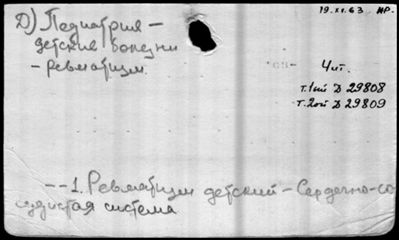 19.XI.63 НР.
Д) Педиатрия —
детские болезни
— ревматизм.
Чит.
т.1ый D 29808
т.2ой D 29809
-- 1. Ревматизм детский — Сердечно-со
судистая система